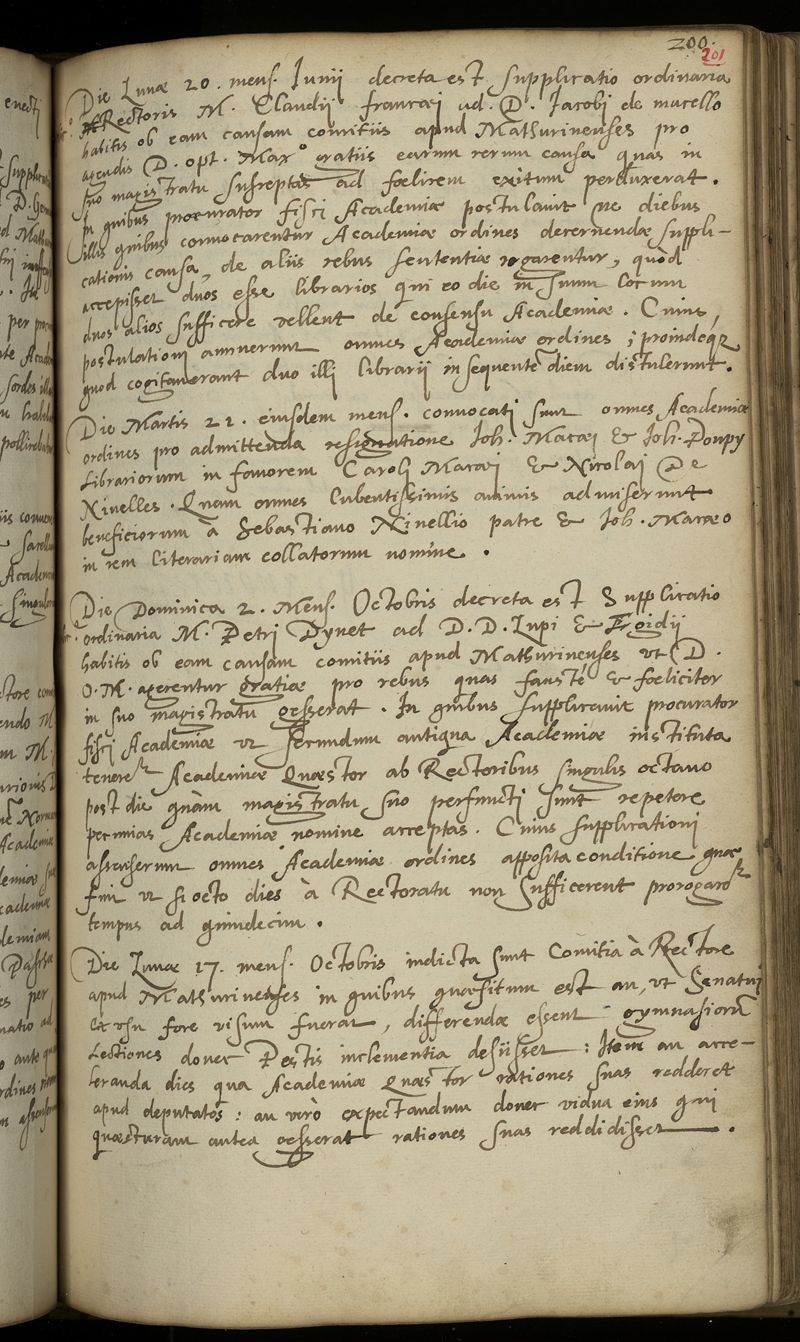 200.
201
Die Lunæ 20. mens. Iunij decreta est supplicatio ordinaria
Rectoris M. Claudij francæi ad D. Iacobi de macello
habitis ob eam causam comitiis apud Mathurinenses pro
agendis D. opt. Max° gratiis earum rerum causa quas in
suo magistratu susceptas ad fœlicem exitum perduxerat.
In quibus procurator fisci Academiæ postulavit ne diebus
illis quibus convocarentur Academiæ ordines decernendæ suppli-
cationis causa, de aliis rebus sententiæ rogarentur, quòd
accepisset duos esse librarios qui eo die in suum locum
duos alios sufficere vellent de consensu Academiæ. Cuius
postulationi annuerunt omnes Academiæ ordines ; proindeque
quod cogitaverant duo illi librarij in sequentē diem distulerunt.
Die Martis 21. eiusdem mens. convocati sunt omnes Academiæ
ordines pro admittenda resignatione Joh. Macæi & Joh. Poupy
Librariorum in favorem Caroli Macæi & Nicolai De
Ninelles. Quam omnes lubentissimis animis admiserunt
beneficiorum à Sebastiano Ninellio patre & Joh. Macæo
in rem literariam collatorum nomine.
Die Dominica 2. Mens. Octobris decreta est Supplicatio
ordinaria M. Petri Dynet ad D. D. Lupi & Ægidij
habitis ob eam causam comitiis apud Mathurinenses ut D.
O. M. agerentur gratiæ pro rebus quas faustè & fœliciter
in suo magistratu gesserat. In quibus supplicavit procurator
fisci Academiæ ut secundum antiqua Academiæ instituta
teneretur Academiæ Quæstor ab Rectoribus singulis octavo
post die quàm magistratu suo perfuncti sunt repetere
pecunias Academiæ nomine acceptas. Cuius supplicationi
assenserunt omnes Academiæ ordines apposita conditione quæ
fuit ut si octo dies à Rectoratu non sufficerent prorogaretur
tempus ad quindecim.
Die Lunæ 17. mens. Octobris indicta sunt Comitia à Rectore
apud Mathurinenses in quibus quæsitum est an, ut Senatui
ex usu fore visum fuerat, differendæ essent gymnasiorū
Lectiones donec Pestis inclementia desiisset : Item an acce-
leranda dies qua Academiæ Quæstor rationes suas redderet
apud deputatos : an verò expectandum donec vidua eius qui
quæsturam antea gesserat rationes suas reddidisset.